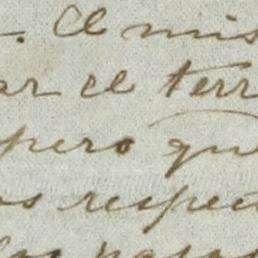 . El mis
ar el terr
pero qu
os respec